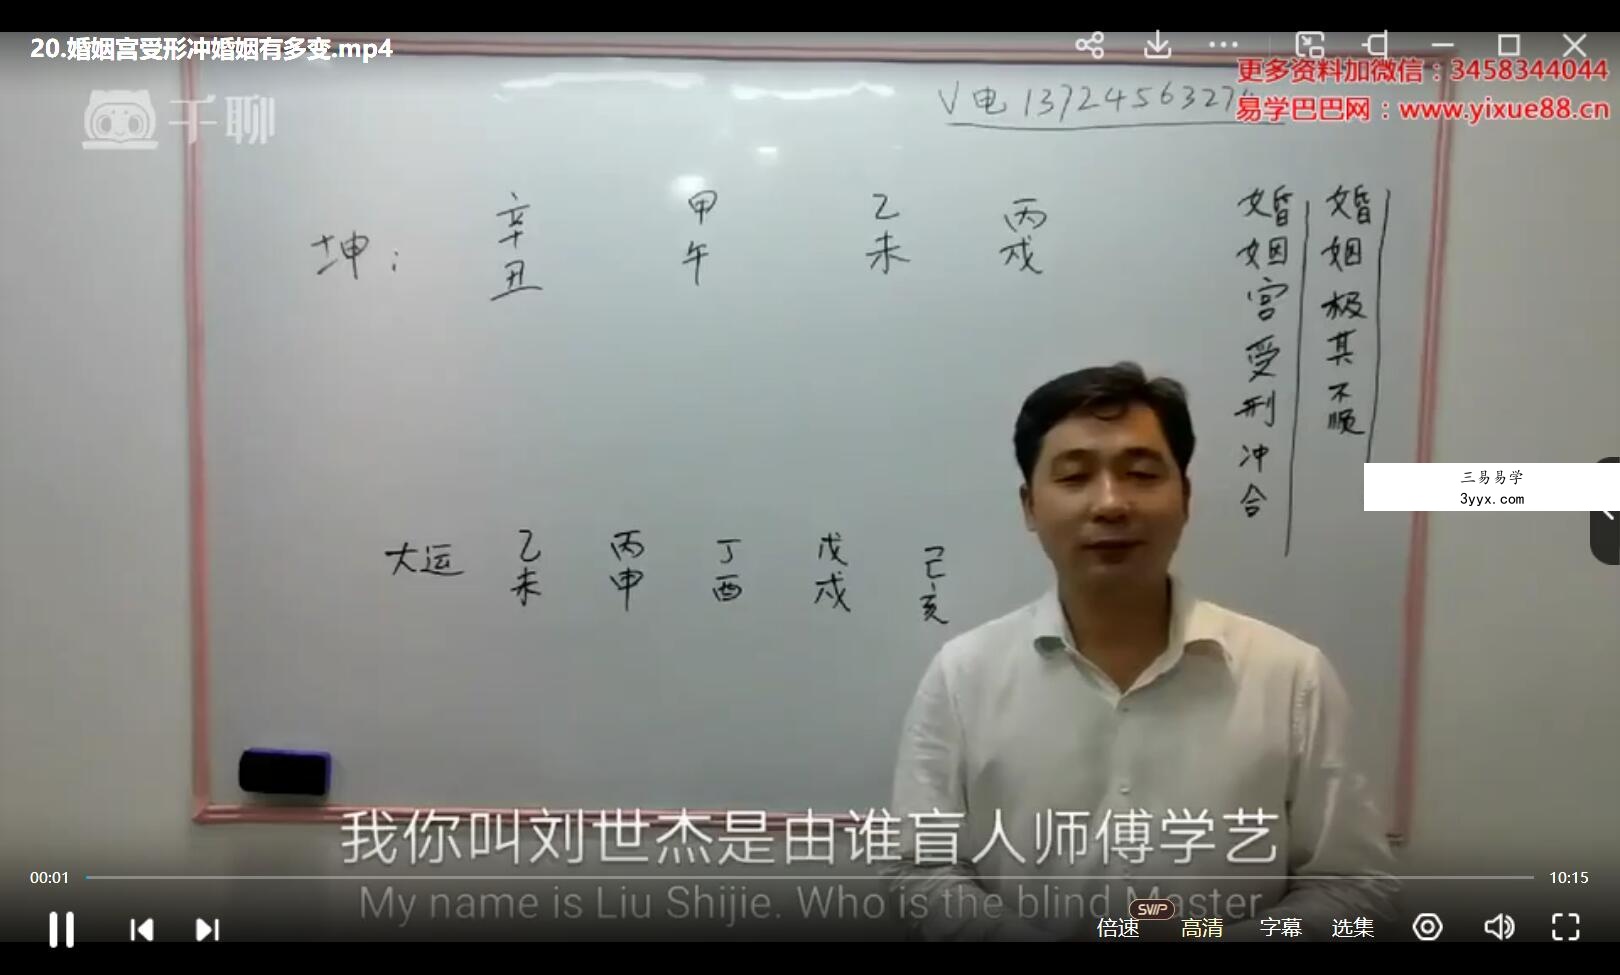 20.婚姻宫受形冲婚姻有多变.mp4
更多资料加微信：3458344044
易学巴巴网：www.yixue88.cn
千聊
V电 1372456327
坤：
辛 甲 乙 丙
丑 午 未 戌
婚姻极其不顺
婚姻宫受刑冲合
三易易学
3yyx.com
大运
乙 丙 丁 戊 己
未 申 酉 戌 亥
我你叫刘世杰是由谁盲人师傅学艺
My name is Liu Shijie. Who is the blind Master
00:01
10:15
SVIP
倍速
高清
字幕
选集